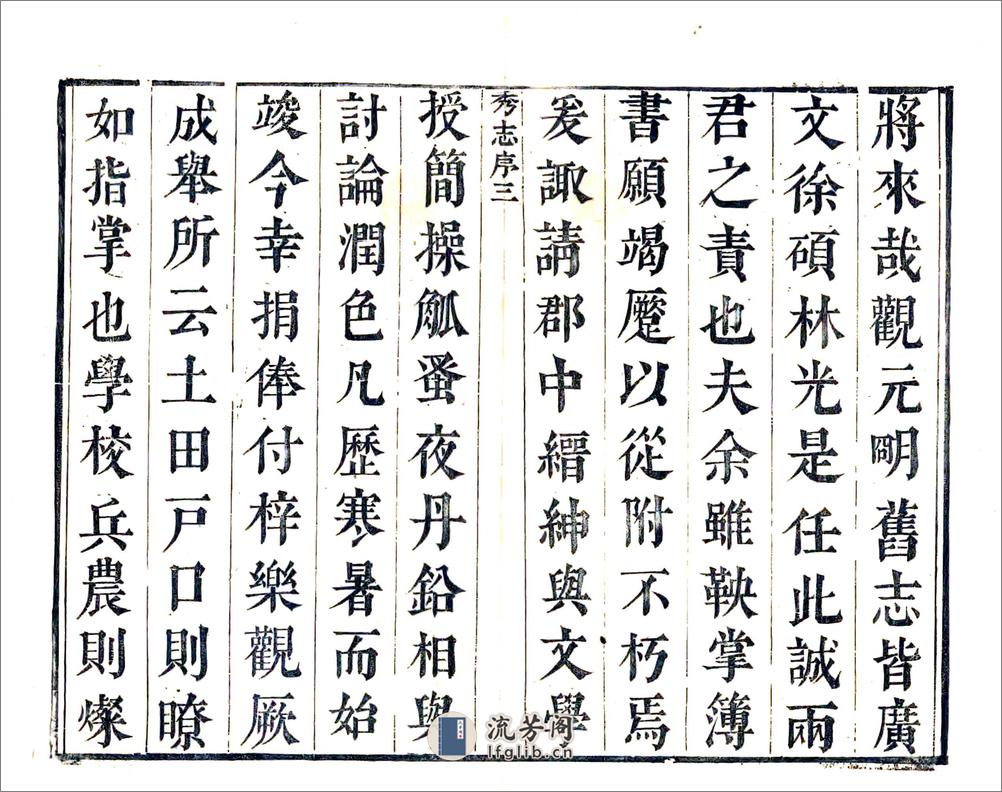 將來哉觀元明舊志皆廣
文徐碩林光是任此誠兩
君之責也夫余雖鞅掌簿
書願竭蹷以從附不朽焉
爰諏請郡中縉紳與文學
秀志序三
授簡操觚蚤夜丹鉛相與
討論潤色凡歷寒暑而始
竣今幸捐俸付梓樂觀厥
成舉所云土田戶口則瞭
如指掌也學校兵農則燦
流芳阁
lfglib.cn